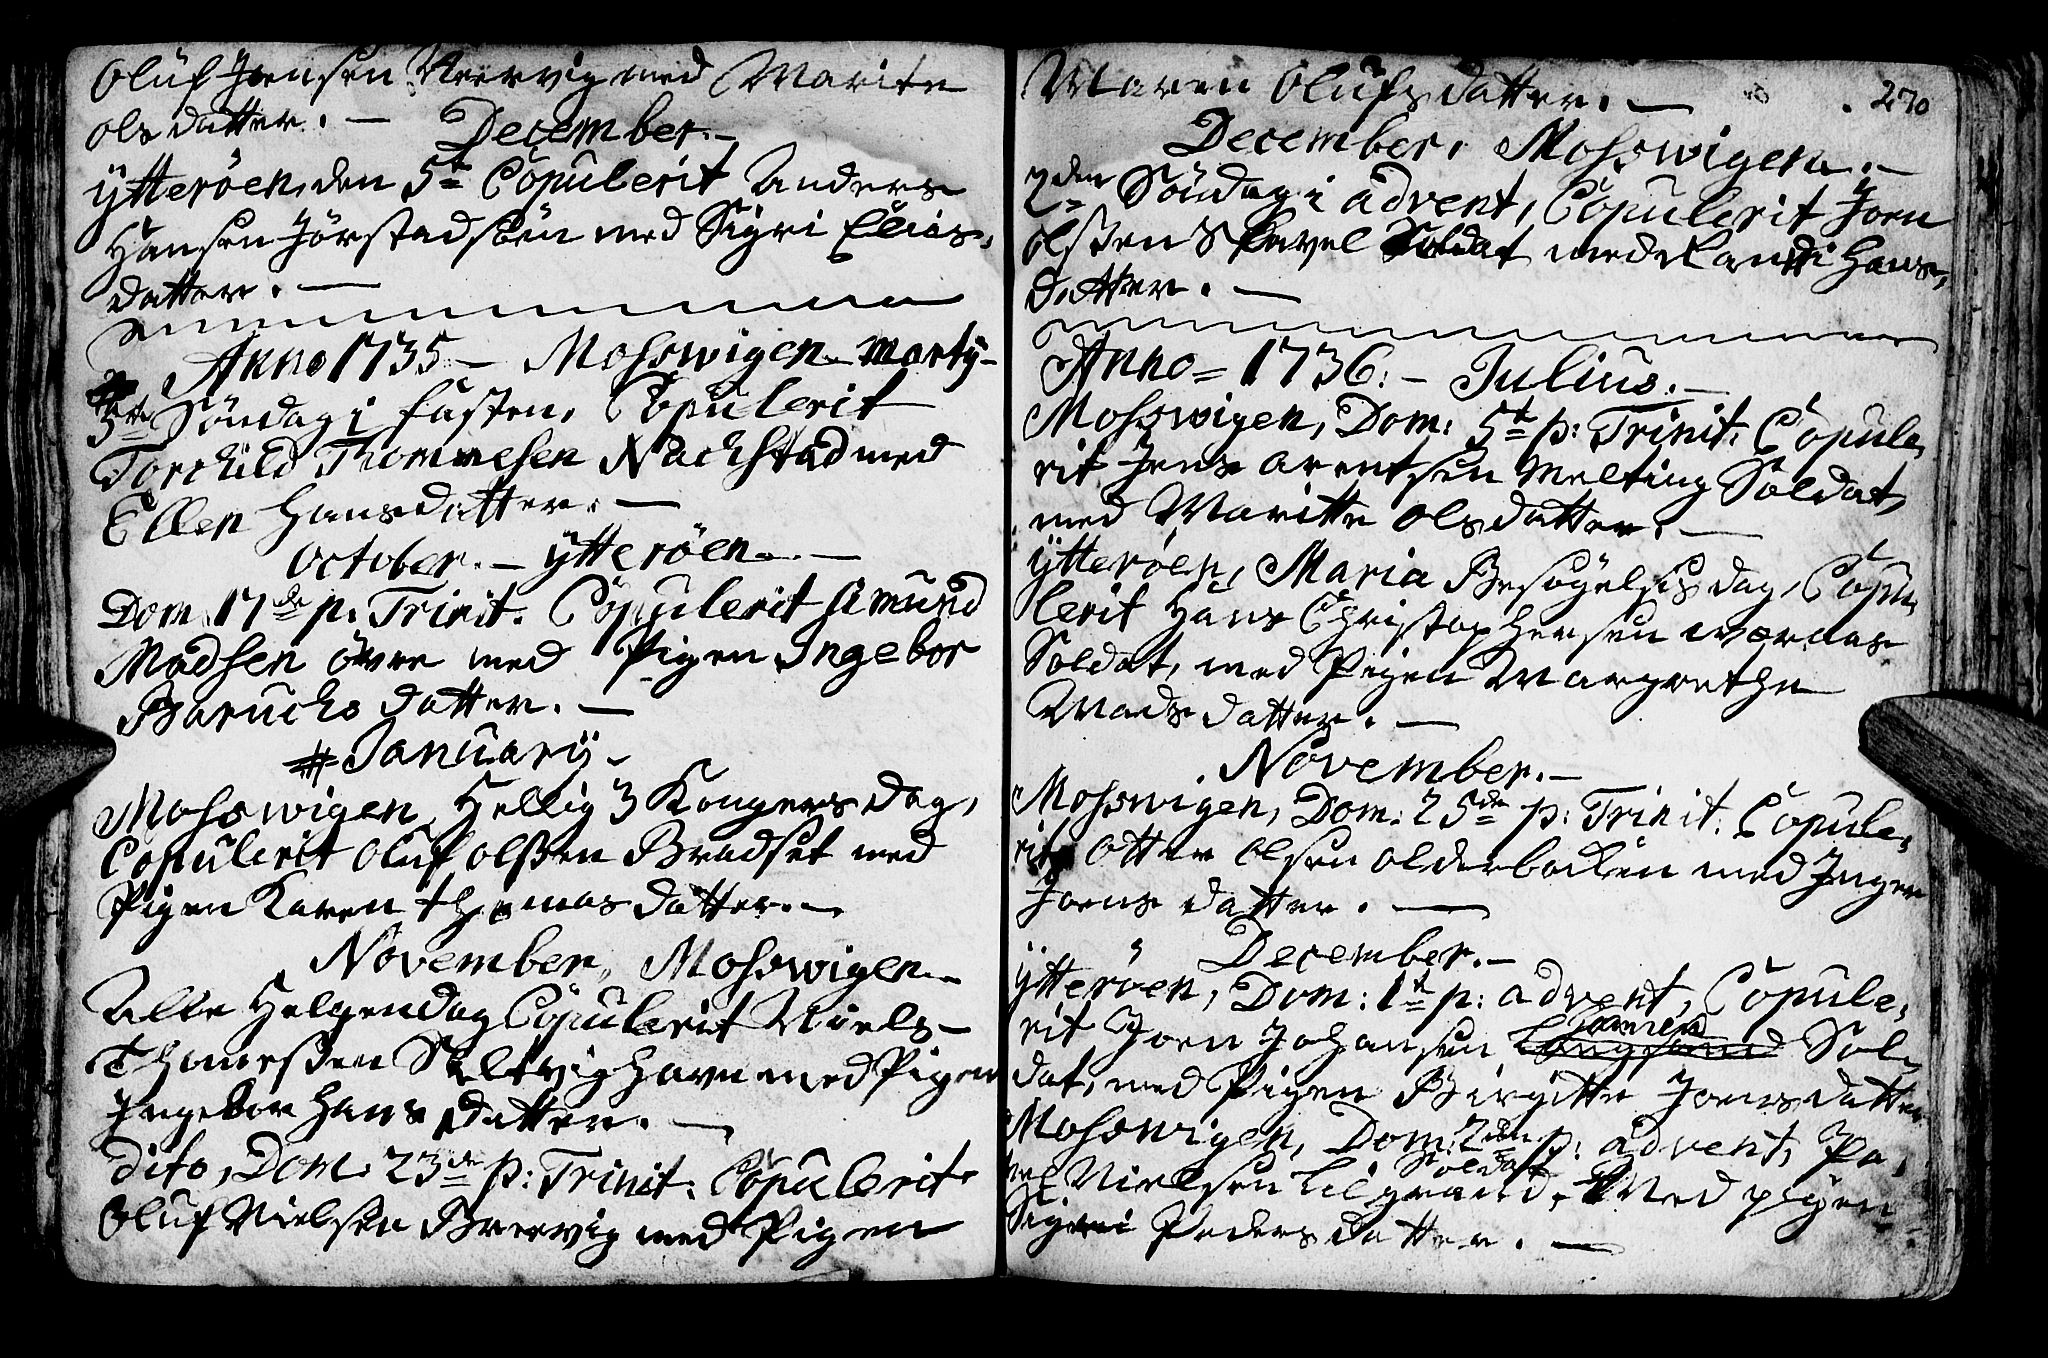 Oluf Jensen Nervig med Marite
olsdatter. —
December. —
ytterøen, den 5te Copulerit Anders
Hansen Jørstadsøen med Sigri Elias,
datter. —
Anno 1735 — Mosswigen. Marty —
3die Søndag i fasten, Copulerit
Torchild Thommesen Nachstad med
Ellen Hansdatter. —
October. — ytterøen. —
Dom. 17de p. Trinit. Copulerit Amund
Madsen øvre med Pigen Ingebor
Baruchs datter. —
January.
Mosswigen, Hellig 3 Kongers dag,
Copulerit Oluf olssen Bradset med
Pigen Karen thomas datter. —
November, Mosswigen. —
Alle Helgendag Copulerit Niels
Thomessen Seltvighavn med Pigen
Ingebor Hans datter. —
dito, Dom. 23de p: Trinit: Copulerit
Oluf Nielsen Brervig med Pigen
270
Maren Olufsdatter. —
December, Mosswigen. —
2den Søndag i advent, Copulerit Joen
olssen Skevel Soldat med Randi Hans,
datter. —
Anno = 1736. — Julius. —
Mosswigen, Dom: 5te p: Trinit: Copule,
rit Jens arentsen Melting Soldat,
med Maritte olsdatter. —
ytterøen, Maria Besøgelsis dag, Copu,
lerit Hans Christophersen wærdas
Soldat, med Pigen Margrethe
Madsdatter. —
November. —
Mosswigen, Dom: 25de p: Trinit: Copule,
rit Otter olsen olderbacken med Inger
Joens datter. —
December. —
ytterøen, Dom: 1te p: advent, Copule,
rit Joen Johansen Langsand Sol,
dat, med Pigen Birgitte Joensdatter
Mosswigen, Dom: 2den p: advent, Pa,
vel Nielsen Lilgrand, Soldat Med pigen
Sigri Peders datter. —